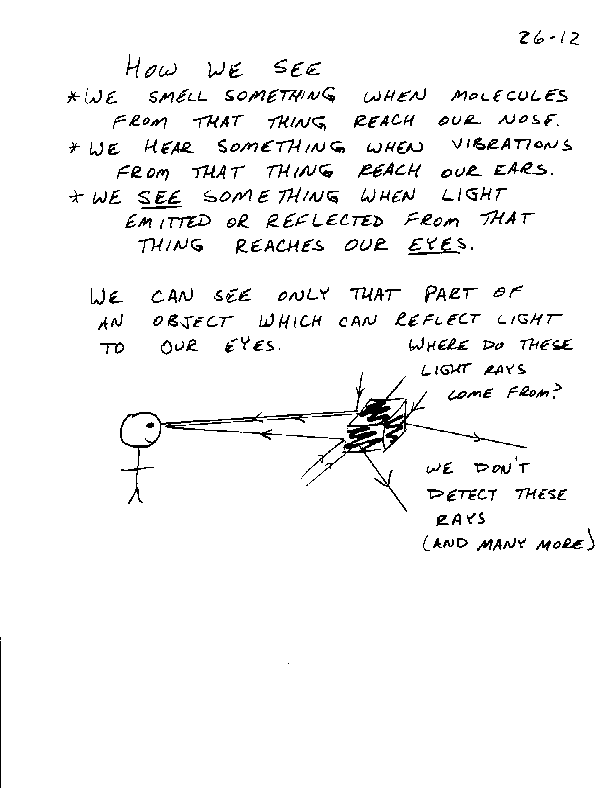 26-12
HOW WE SEE
*WE SMELL SOMETHING WHEN MOLECULES
FROM THAT THING REACH OUR NOSE.
* WE HEAR SOMETHING WHEN VIBRATIONS
FROM THAT THING REACH OUR EARS.
* WE SEE SOMETHING WHEN LIGHT
EMITTED OR REFLECTED FROM THAT
THING REACHES OUR EYES.
WE CAN SEE ONLY THAT PART OF
AN OBJECT WHICH CAN REFLECT LIGHT
TO OUR EYES.
WHERE DO THESE
LIGHT RAYS
COME FROM?
WE DON'T
DETECT THESE
RAYS
(AND MANY MORE)